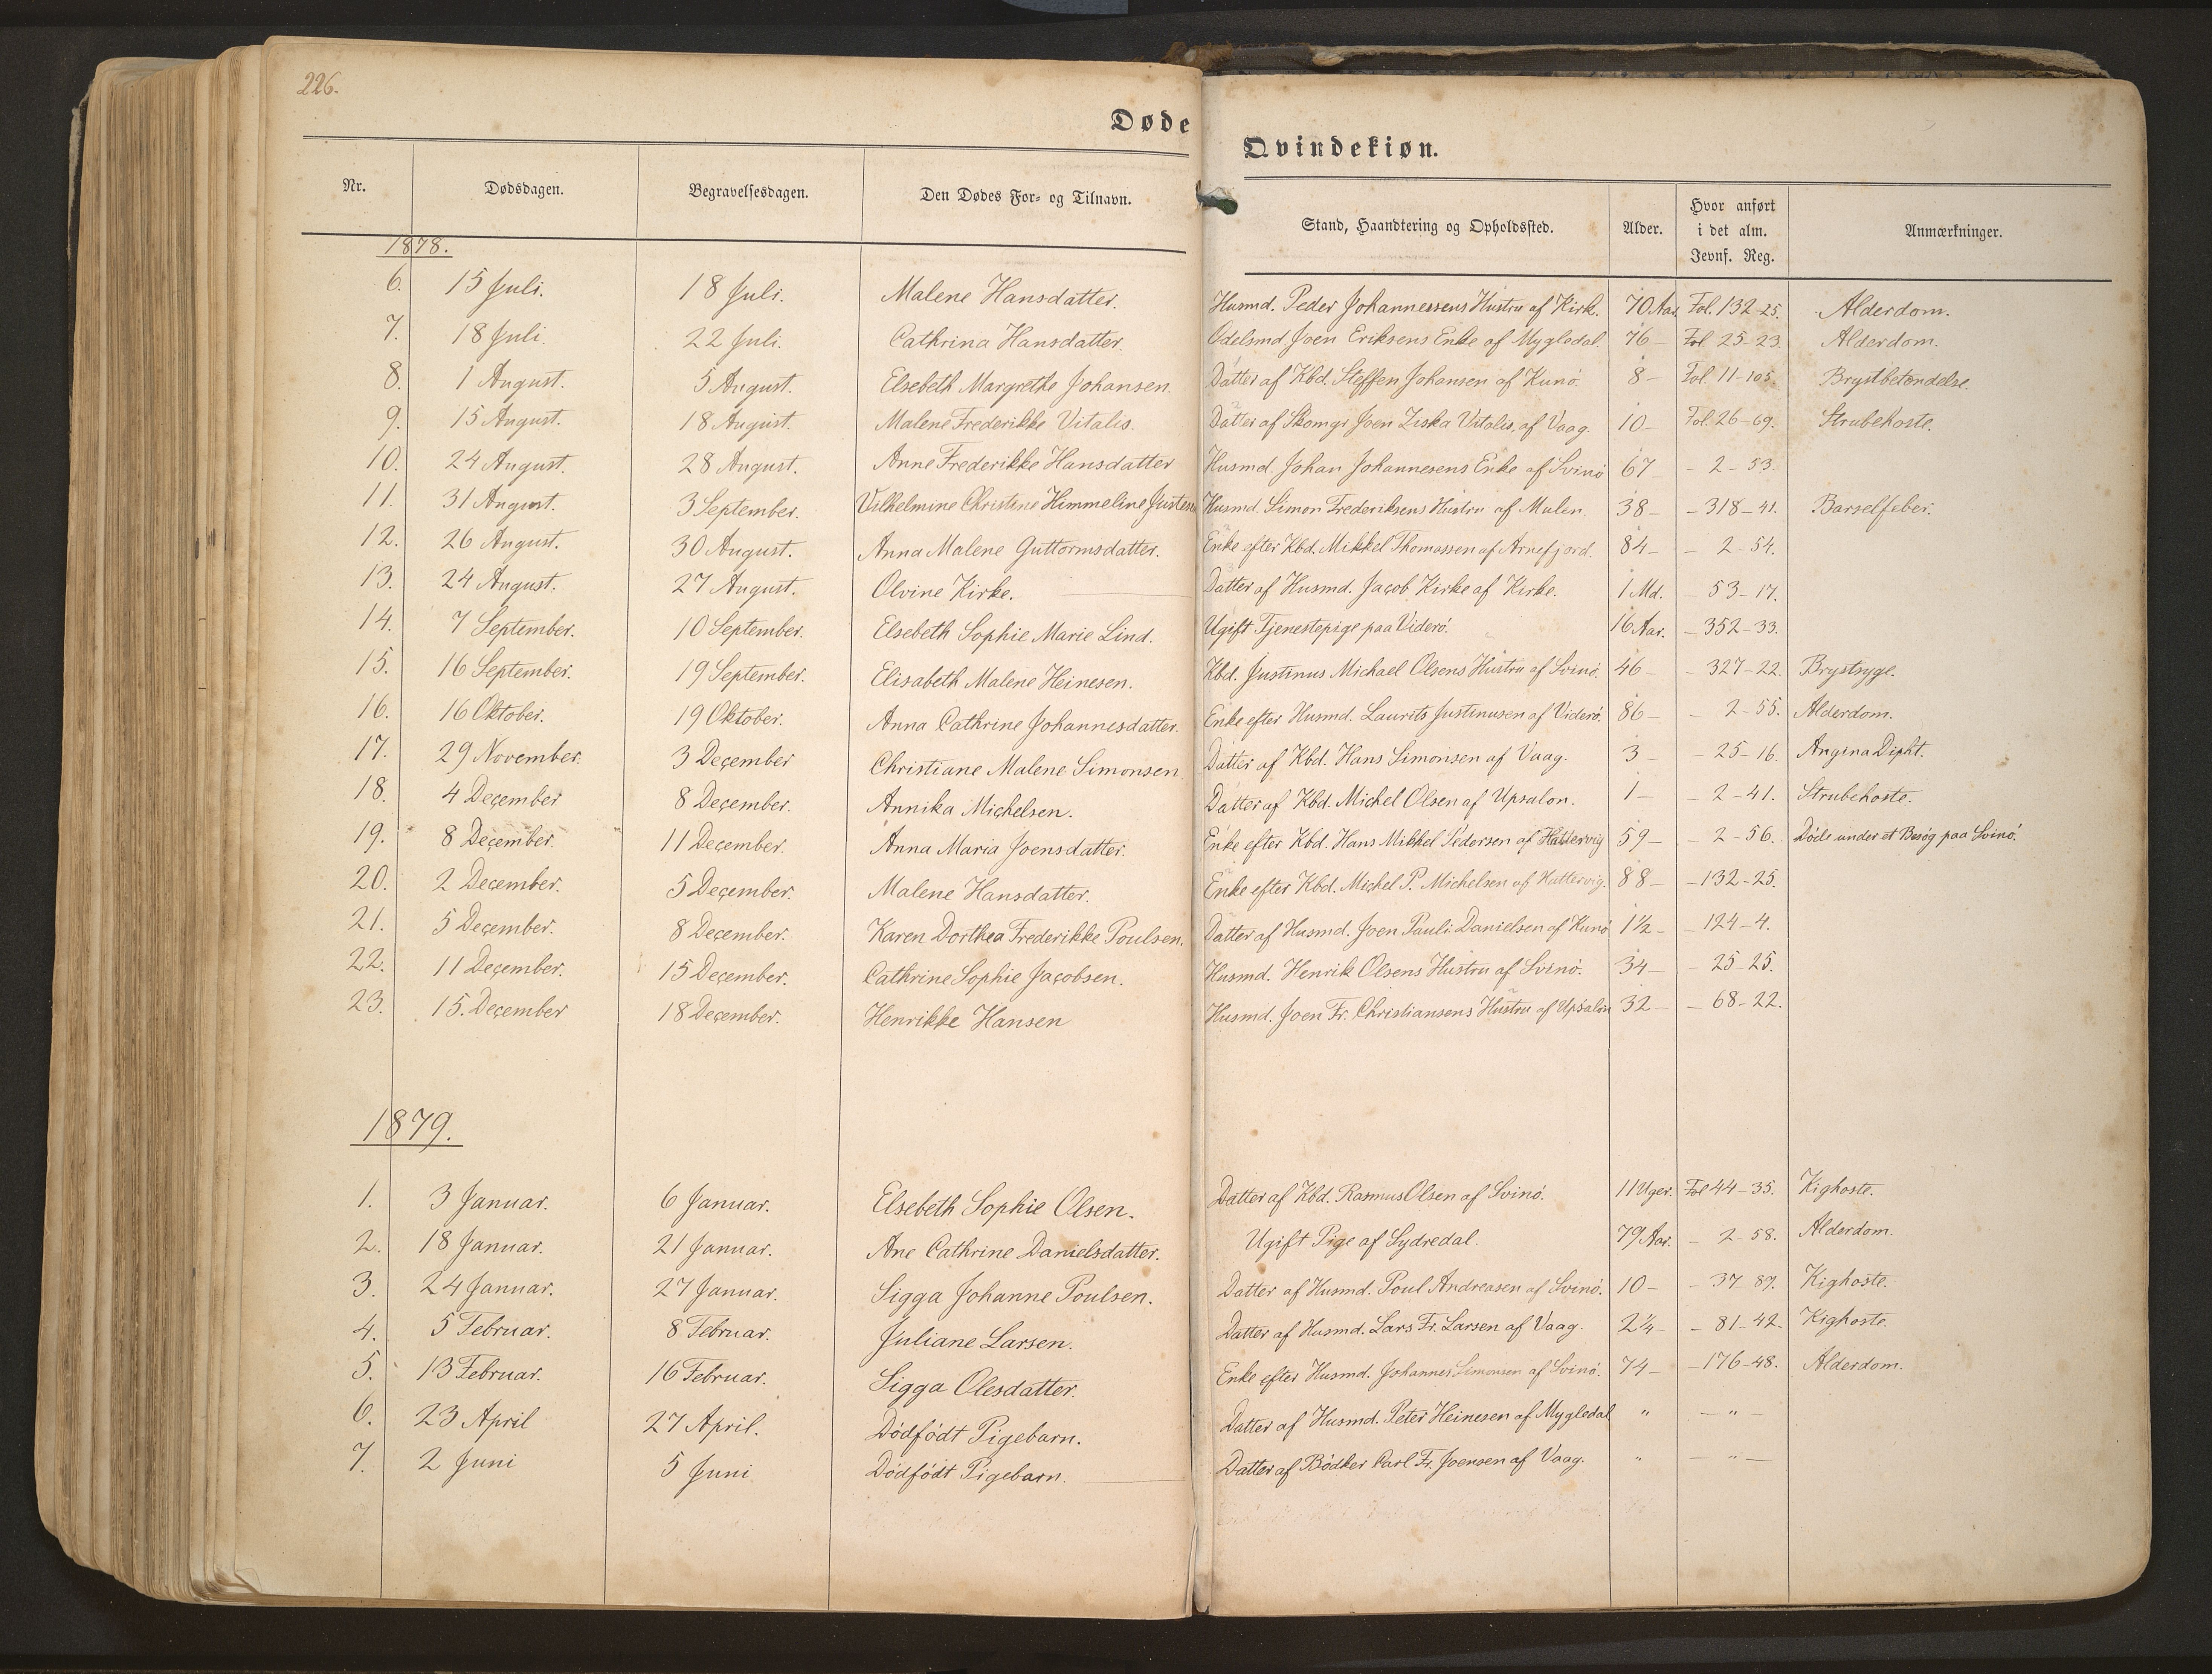 226.
Døde Qvindekiøn.
Nr. Dødsdagen. Begravelsesdagen. Den Dødes For- og Tilnavn. Stand, Haandtering og Opholdssted. Alder. Hvor anført i det alm. Jevnf. Reg. Anmærkninger.
1878.
6. 15 Juli. 18 Juli. Malene Hansdatter. Husmd. Peder Johannessens Hustru af Kirk. 70 Aar Fol. 132-25. Alderdom.
7. 18 Juli. 22 Juli. Cathrina Hansdatter. Odelsmd. Joen Eriksens Enke af Mygledal. 76 - Fol 25-23. Alderdom.
8. 1 August. 5 August. Elsebeth Margrethe Johansen. Datter af Kbd. Steffen Johansen af Kunø. 8 - Fol. 11-105. Brystbetændelse.
9. 15 August. 18 August. Malene Frederikke Vitalis. Datter af Skomgr Joen Ziska Vitalis, af Vaag. 10 - Fol. 26-69. Strubehoste.
10. 24 August. 28 August. Anne Frederikke Hansdatter Husmd. Johan Johannesens Enke af Svinø 67 - - 2-53.
11. 31 August. 3 September. Vilhelmine Christine Himmeline Justesen Husmd. Simon Frederiksens Hustru af Mulen. 38 - - 318-41. Barselfeber.
12. 26 August. 30 August. Anna Malene Guttormsdatter. Enke efter Kbd. Mikkel Thomassen af Arnefjord. 84 - - 2-54.
13. 24 August. 27 August. Olvine Kirke. Datter af Husmd. Jacob Kirke af Kirke. 1 Md. - 53-17.
14. 7 September. 10 September. Elsebeth Sophie Marie Lind. Ugift Tjenestepige paa Viderø. 16 Aar. - 352-33.
15. 16 September. 19 September. Elisabeth Malene Heinesen. Kbd. Justinus Michael Olsens Hustru af Svinø. 46 - - 327-22. Brystsyge.
16. 16 Oktober. 19 Oktober. Anna Cathrine Johannesdatter. Enke efter Husmd. Laurits Justinusen af Viderø. 86 - - 2-55. Alderdom.
17. 29 November. 3 December Christiane Malene Simonsen Datter af Kbd. Hans Simonsen af Vaag. 3 - - 25-16. Angina Dipht.
18. 4 December 8 December. Annika Michelsen. Datter af Kbd. Michel Olsen af Upsalon. 1 - - 2-41. Strubehoste.
19. 8 December. 11 December. Anna Maria Joensdatter. Enke efter Kbd. Hans Mikkel Pedersen af Hattervig 59 - - 2-56. Døde under et Besøg paa Svinø.
20. 2 December. 5 December. Malene Hansdatter. Enke efter Kbd. Michel P. Michelsen af Hattervig. 88 - - 132-25.
21. 5 December. 8 December. Karen Dorthea Frederikke Poulsen. Datter af Husmd. Joen Pauli Danielsen af Kunø 1½ - - 124-4.
22. 11 December. 15 December. Cathrine Sophie Jacobsen. Husmd. Henrik Olsens Hustru af Svinø. 34 - - 25-25.
23. 15. December 18 December. Henrikke Hansen Husmd. Joen Fr. Christiansens Hustru af Upsalon 32 - - 68-22.
1879.
1. 3 Januar. 6 Januar. Elsebeth Sophie Olsen. Datter af Kbd. Rasmus Olsen af Svinø. 11 Uger. Fol 44-35. Kighoste.
2. 18 Januar. 21 Januar. Ane Cathrine Danielsdatter. Ugift Pige af Sydredal. 79 Aar. - 2-58. Alderdom.
3. 24 Januar. 27 Januar. Sigga Johanne Poulsen. Datter af Husmd. Poul Andreasen af Svinø. 10 - - 37-87. Kighoste.
4. 5 Februar. 8 Februar. Juliane Larsen. Datter af Husmd. Lars Fr. Larsen af Vaag. 2¼ - - 81-42. Kighoste.
5. 13 Februar. 16 Februar. Sigga Olesdatter. Enke efter Husmd. Johannes Simonsen af Svinø. 74 - - 176-48. Alderdom.
6. 23 April 27 April. Dødfødt Pigebarn. Datter af Husmd. Peter Heinesen af Mygledal " - " -
7. 2 Juni 5 Juni. Dødfødt Pigebarn. Datter af Bødker Carl Fr. Joensen af Vaag. " - " -